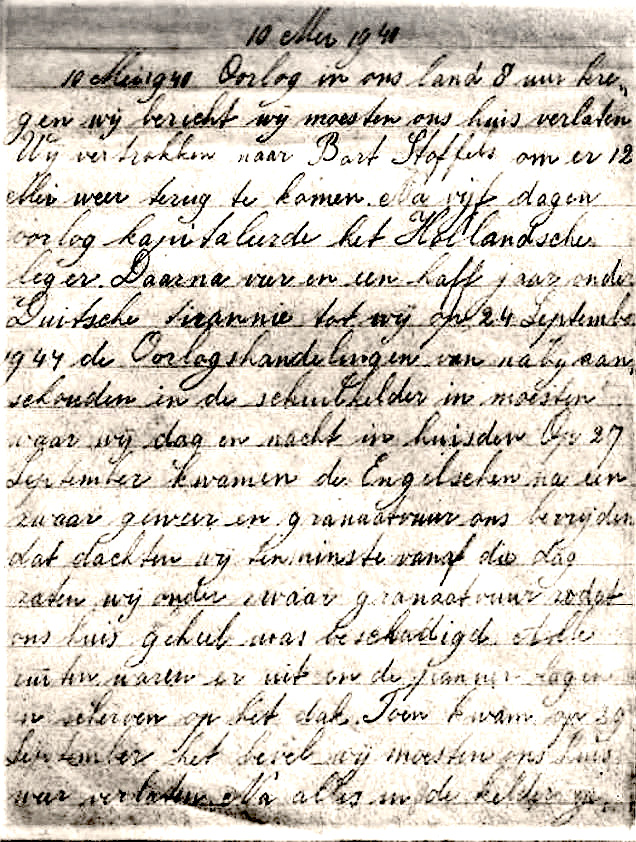 10 Mei 1940
10 Mei 1940 Oorlog in ons land 8 uur kre„
gen wij bericht wij moesten ons huis verlaten
Wij vertrokken naar Bart Stoffels om er 12
Mei weer terug te komen. Na vijf dagen
oorlog kapitaleerde het Hollandsche
leger. Daarna vier en een half jaar onder
Duitsche tirannie tot wij op 24 September
1944 de Oorlogshandelingen van naby aan„
schouden en de schuilkelder in moesten
waar wij dag en nacht in huisden Op 27
September kwamen de Engelschen na een
zwaar geweer en granaatvuur ons bevrijden
dat dachten wij tenminste vanaf die dag
zaten wij onder zwaar granaatvuur zodat
ons huis geheel was beschadigd. Alle
ruiten waren er uit en de pannen lagen
in scherven op het dak. Toen kwam op 29
September het bevel wij moesten ons huis
weer verlaten. Na alles in de kelder